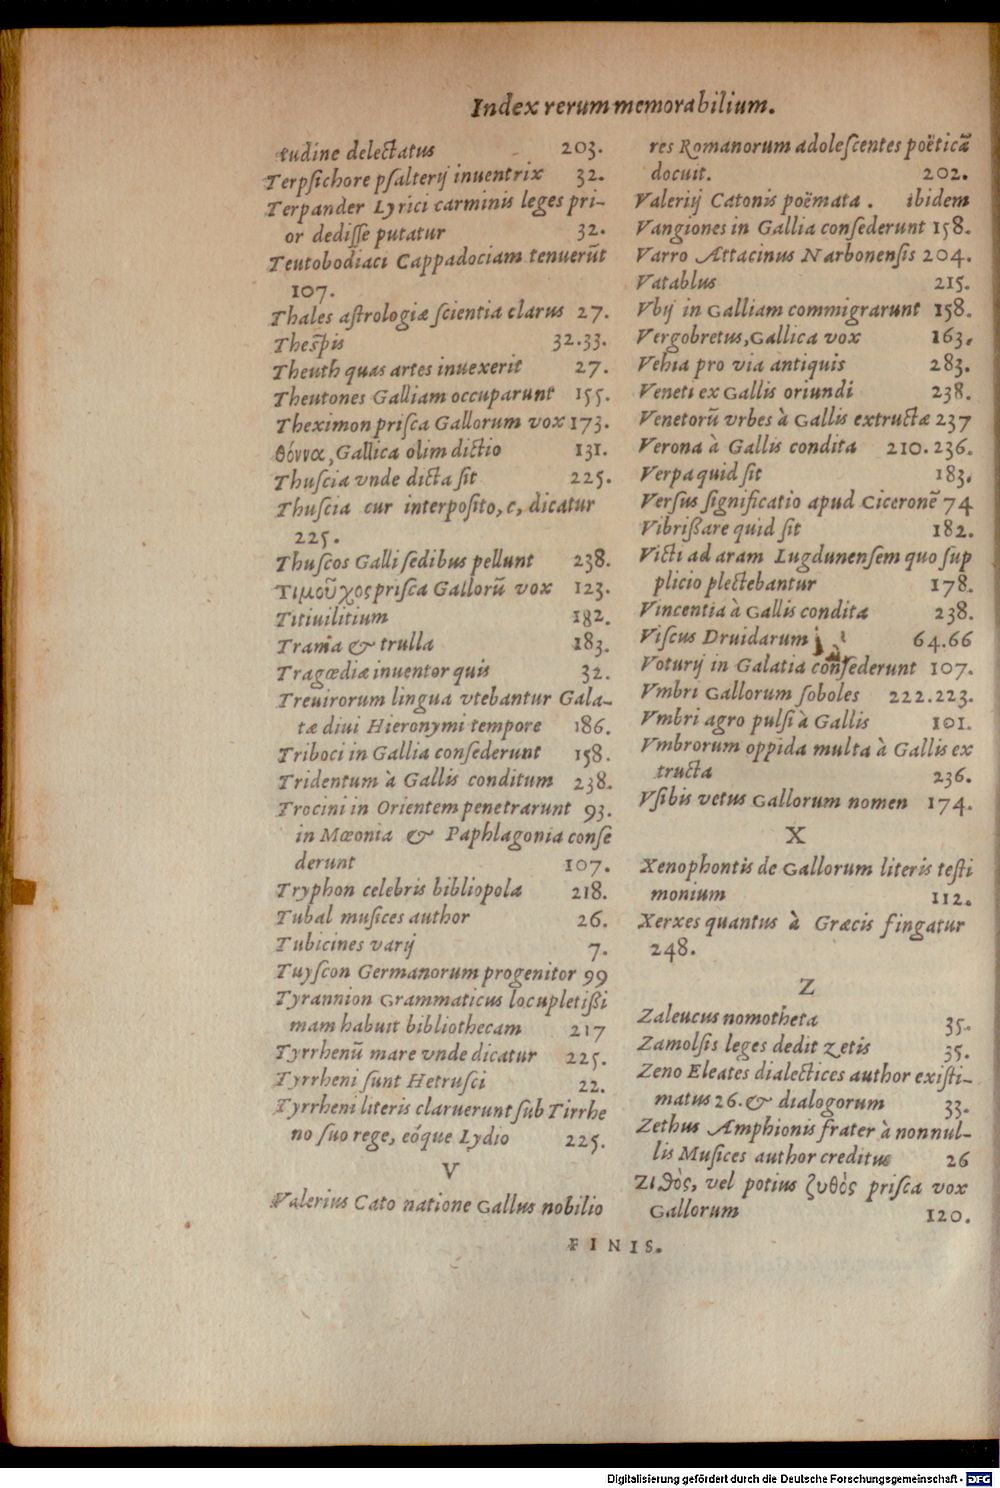 Index rerum memorabilium.
tudine delectatus 203.
Terpsichore psalterij inuentrix 32.
Terpander Lyrici carminis leges pri-
or dedisse putatur 32.
Teutobodiaci Cappadociam tenuerũt
107.
Thales astrologiæ scientia clarus 27.
Thespis 32.33.
Theuth quas artes inuexerit 27.
Theutones Galliam occuparunt 155.
Theximon prisca Gallorum vox 173.
θόννα, Gallica olim dictio 131.
Thuscia vnde dicta sit 225.
Thuscia cur interposito, c, dicatur
225.
Thuscos Galli sedibus pellunt 238.
Τιμοῦχος prisca Gallorũ vox 123.
Titiuilitium 182.
Trama & trulla 183.
Tragœdiæ inuentor quis 32.
Treuirorum lingua vtebantur Gala-
tæ diui Hieronymi tempore 186.
Triboci in Gallia consederunt 158.
Tridentum à Gallis conditum 238.
Trocini in Orientem penetrarunt 93.
in Mœonia & Paphlagonia conse
derunt 107.
Tryphon celebris bibliopola 218.
Tubal musices author 26.
Tubicines varij 7.
Tuyscon Germanorum progenitor 99
Tyrannion Grammaticus locupletißi
mam habuit bibliothecam 217
Tyrrhenũ mare vnde dicatur 225.
Tyrrheni sunt Hetrusci 22.
Tyrrheni literis claruerunt sub Tirrhe
no suo rege, eóque Lydio 225.
V
Valerius Cato natione Gallus nobilio
res Romanorum adolescentes poëticã
docuit. 202.
Valerij Catonis poëmata . ibidem
Vangiones in Gallia consederunt 158.
Varro Attacinus Narbonensis 204.
Vatablus 215.
Vbij in Galliam commigrarunt 158.
Vergobretus, Gallica vox 163.
Vehia pro via antiquis 283.
Veneti ex Gallis oriundi 238.
Venetorũ vrbes à Gallis extructæ 237
Verona à Gallis condita 210.236.
Verpa quid sit 183.
Versus significatio apud Ciceronẽ 74
Vibrißare quid sit 182.
Victi ad aram Lugdunensem quo sup
plicio plectebantur 178.
Vincentia à Gallis condita 238.
Viscus Druidarum 64.66
Voturij in Galatia consederunt 107.
Vmbri Gallorum soboles 222.223.
Vmbri agro pulsi à Gallis 101.
Vmbrorum oppida multa à Gallis ex
tructa 236.
Vsibis vetus Gallorum nomen 174.
X
Xenophontis de Gallorum literis testi
monium 112.
Xerxes quantus à Græcis fingatur
248.
Z
Zaleucus nomotheta 35.
Zamolsis leges dedit zetis 35.
Zeno Eleates dialectices author existi-
matus 26. & dialogorum 33.
Zethus Amphionis frater à nonnul-
lis Musices author creditus 26
Ζιθὸς, vel potius ζυθὸς prisca vox
Gallorum 120.
FINIS.
Digitalisierung gefördert durch die Deutsche Forschungsgemeinschaft - DFG